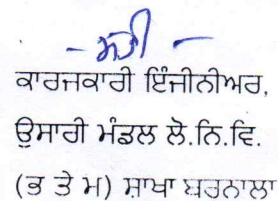 ਸਹੀ
ਕਾਰਜਕਾਰੀ ਇੰਜੀਨੀਅਰ,
ਉਸਾਰੀ ਮੰਡਲ ਲੋ.ਨਿ.ਵਿ.
(ਭ ਤੇ ਮ) ਸ਼ਾਖਾ ਬਰਨਾਲਾ